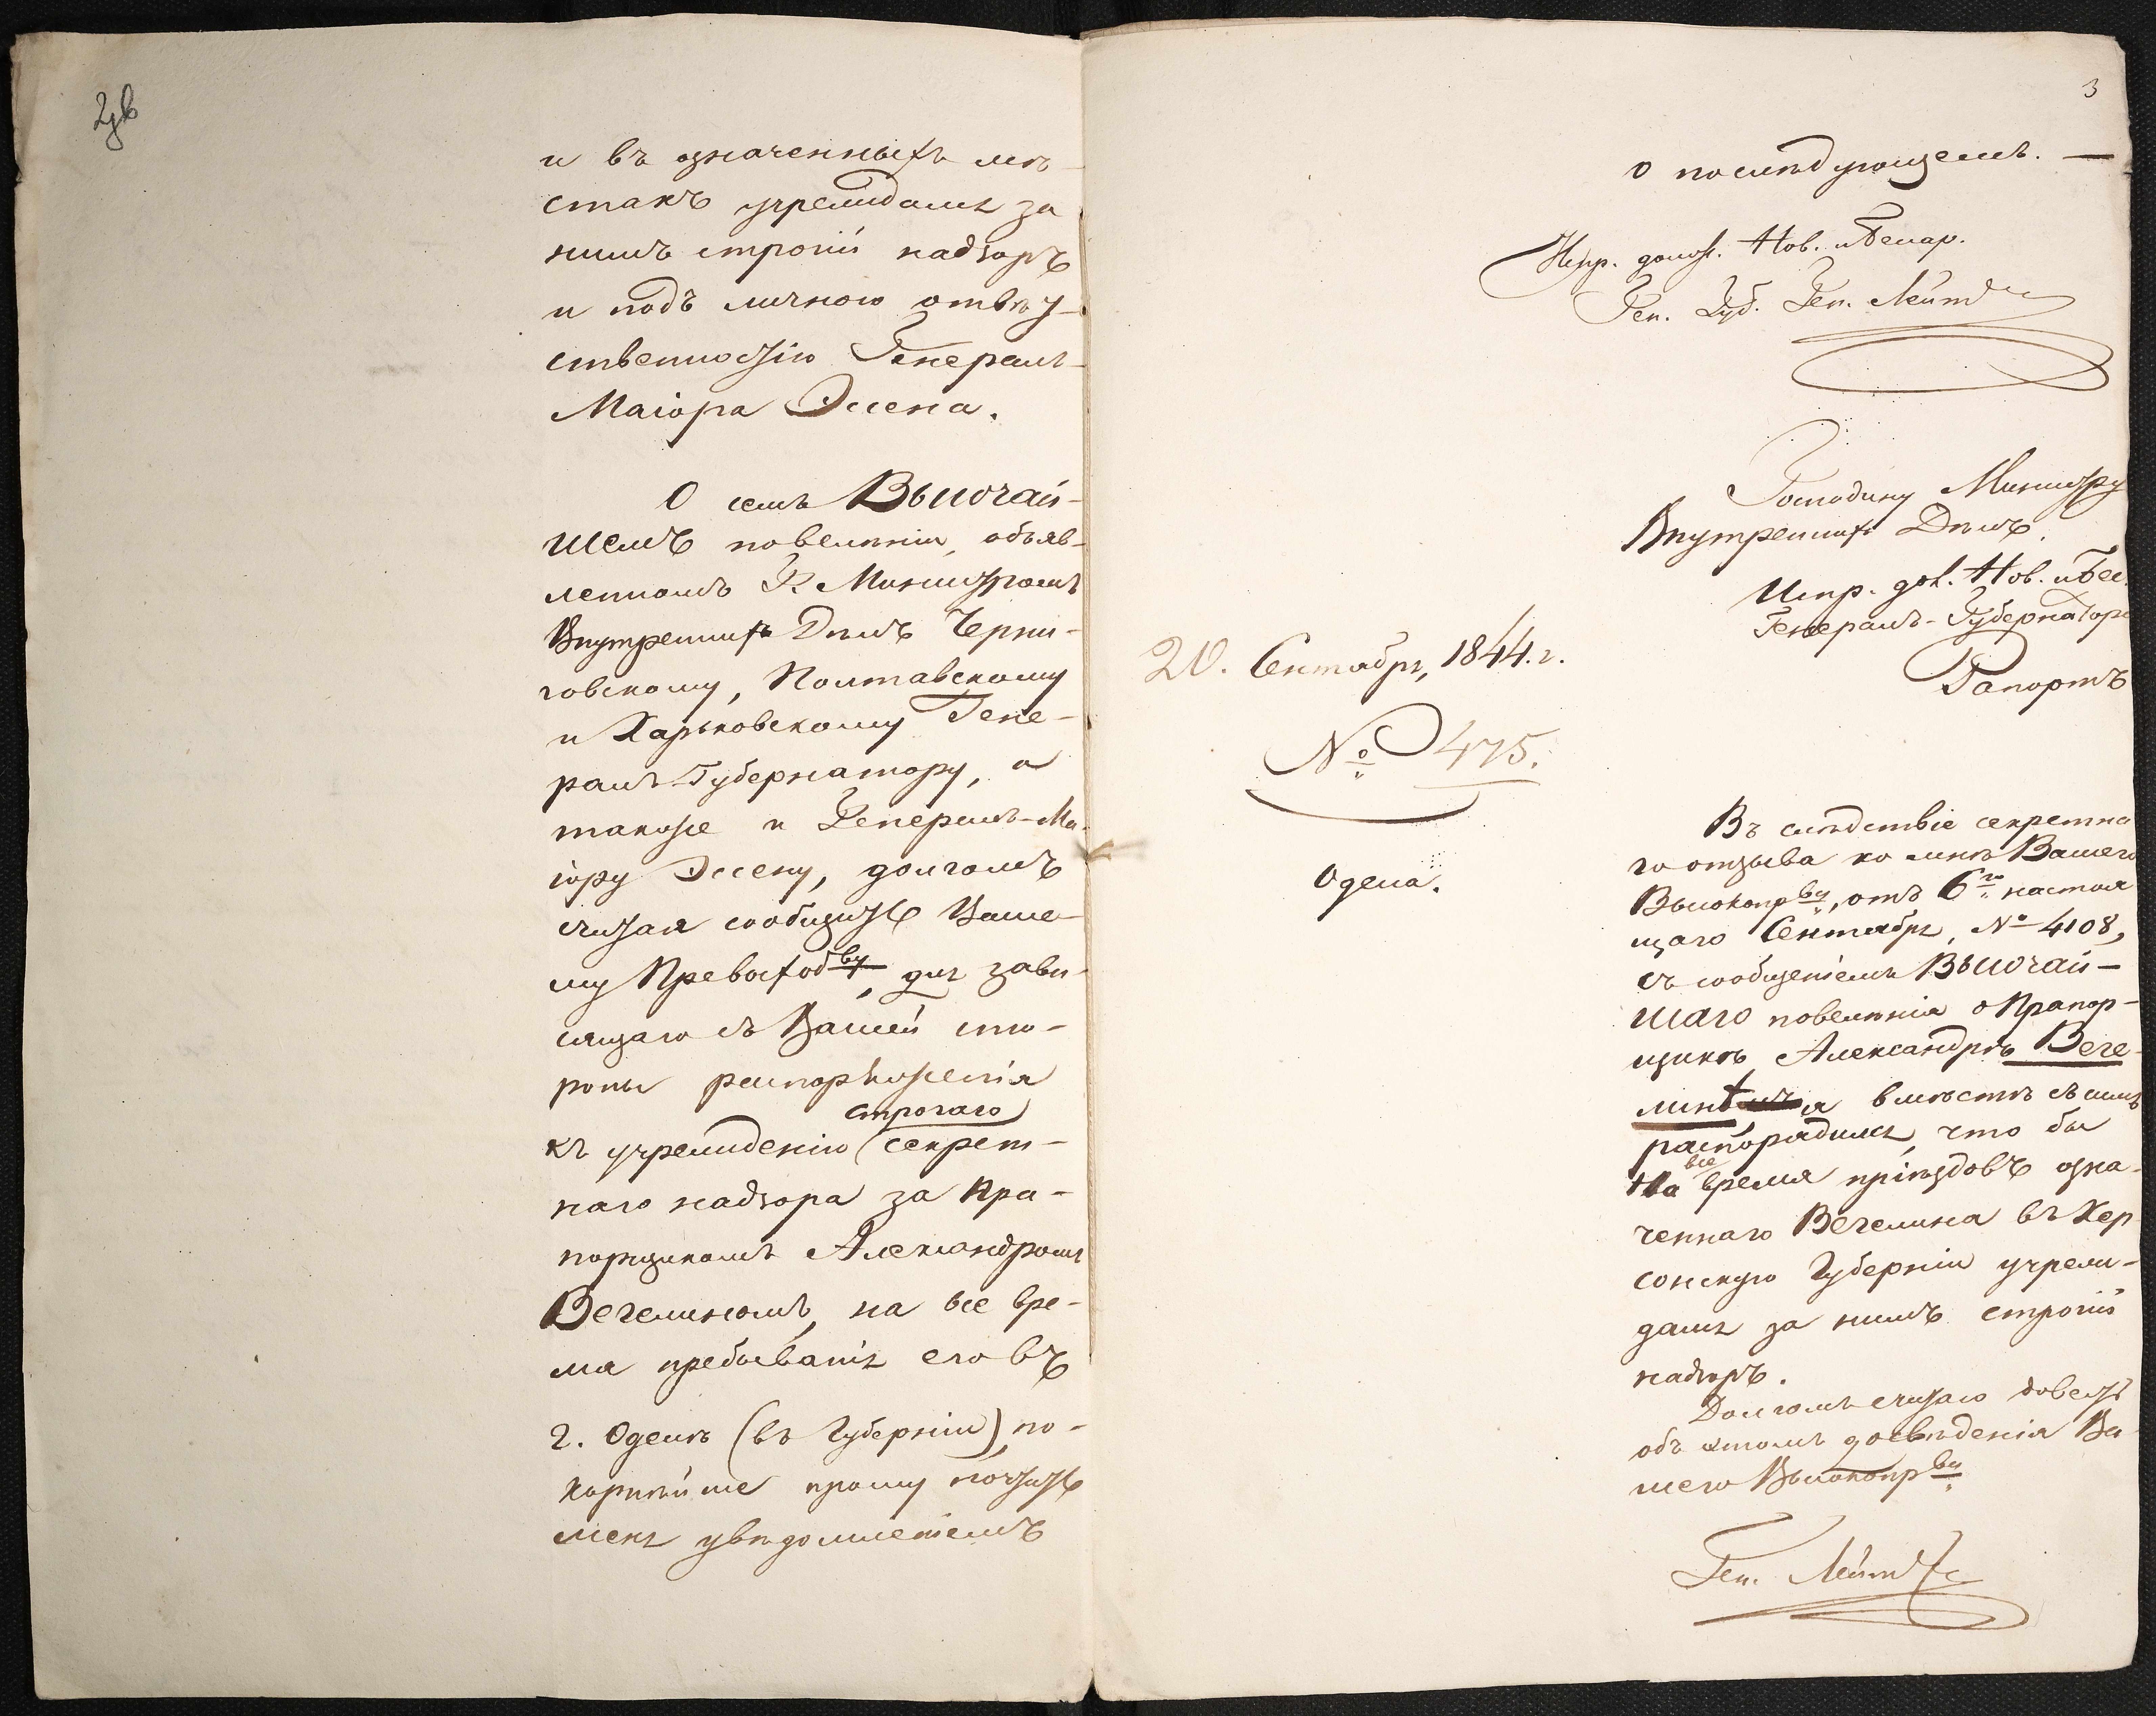 2об
и въ означенныхъ мѣ-
стахъ учреждалъ за
нимъ строгій надзоръ
и подъ личною отвѣт-
ственностію Генералъ-
Маіора Эссена.
О семъ Высочай-
шемъ повелѣніи, объяв-
ленномъ Г. Министромъ
Внутреннихъ Дѣлъ Черни-
говскому, Полтавскому
и Харьковскому Гене-
ралъ-Губернатору, а
также и Генералъ-Ма-
іору Эссену, долгомъ
считая сообщить Ваше-
му Превосход-ву, для зави-
сящаго съ Вашей сто-
роны распоряженія
строгаго
къ учрежденію секрет-
наго надзора за Пра-
порщикомъ Александромъ
Вегелинымъ, на все вре-
мя пребыванія его въ
г. Одессѣ (въ Губерніи) по-
корнѣйше прошу почтить
меня увѣдомленіемъ
3
о послѣдующемъ. —
Испр. должн. Нов. и Бессар.
Ген. Губ. Ген. Лейт
Господину Министру
Внутреннихъ Дѣлъ.
Испр. дол. Нов. и Бес.
Генералъ-Губернатора
Рапортъ
20. Сентября, 1844. г.
№ 475.
Одесса.
Въ слѣдствіе секретна
го отзыва ко мнѣ Вашего
Высокопр-ва, отъ 6го настоя
щаго Сентября, № 4108,
съ сообщеніемъ Высочай-
шаго повелѣнія о Прапор-
щикѣ Александрѣ Веге-
линѣ я вмѣстѣ съ симъ
распорядился, что бы
все
на время пріѣздовъ озна-
ченнаго Вегелина въ Хер
сонскую Губернію учреж-
далъ за нимъ строгій
надзоръ.
Долгомъ считаю довесть
объ этомъ до свѣденія Ва-
шего Высокопр-ва
Ген. Лейт